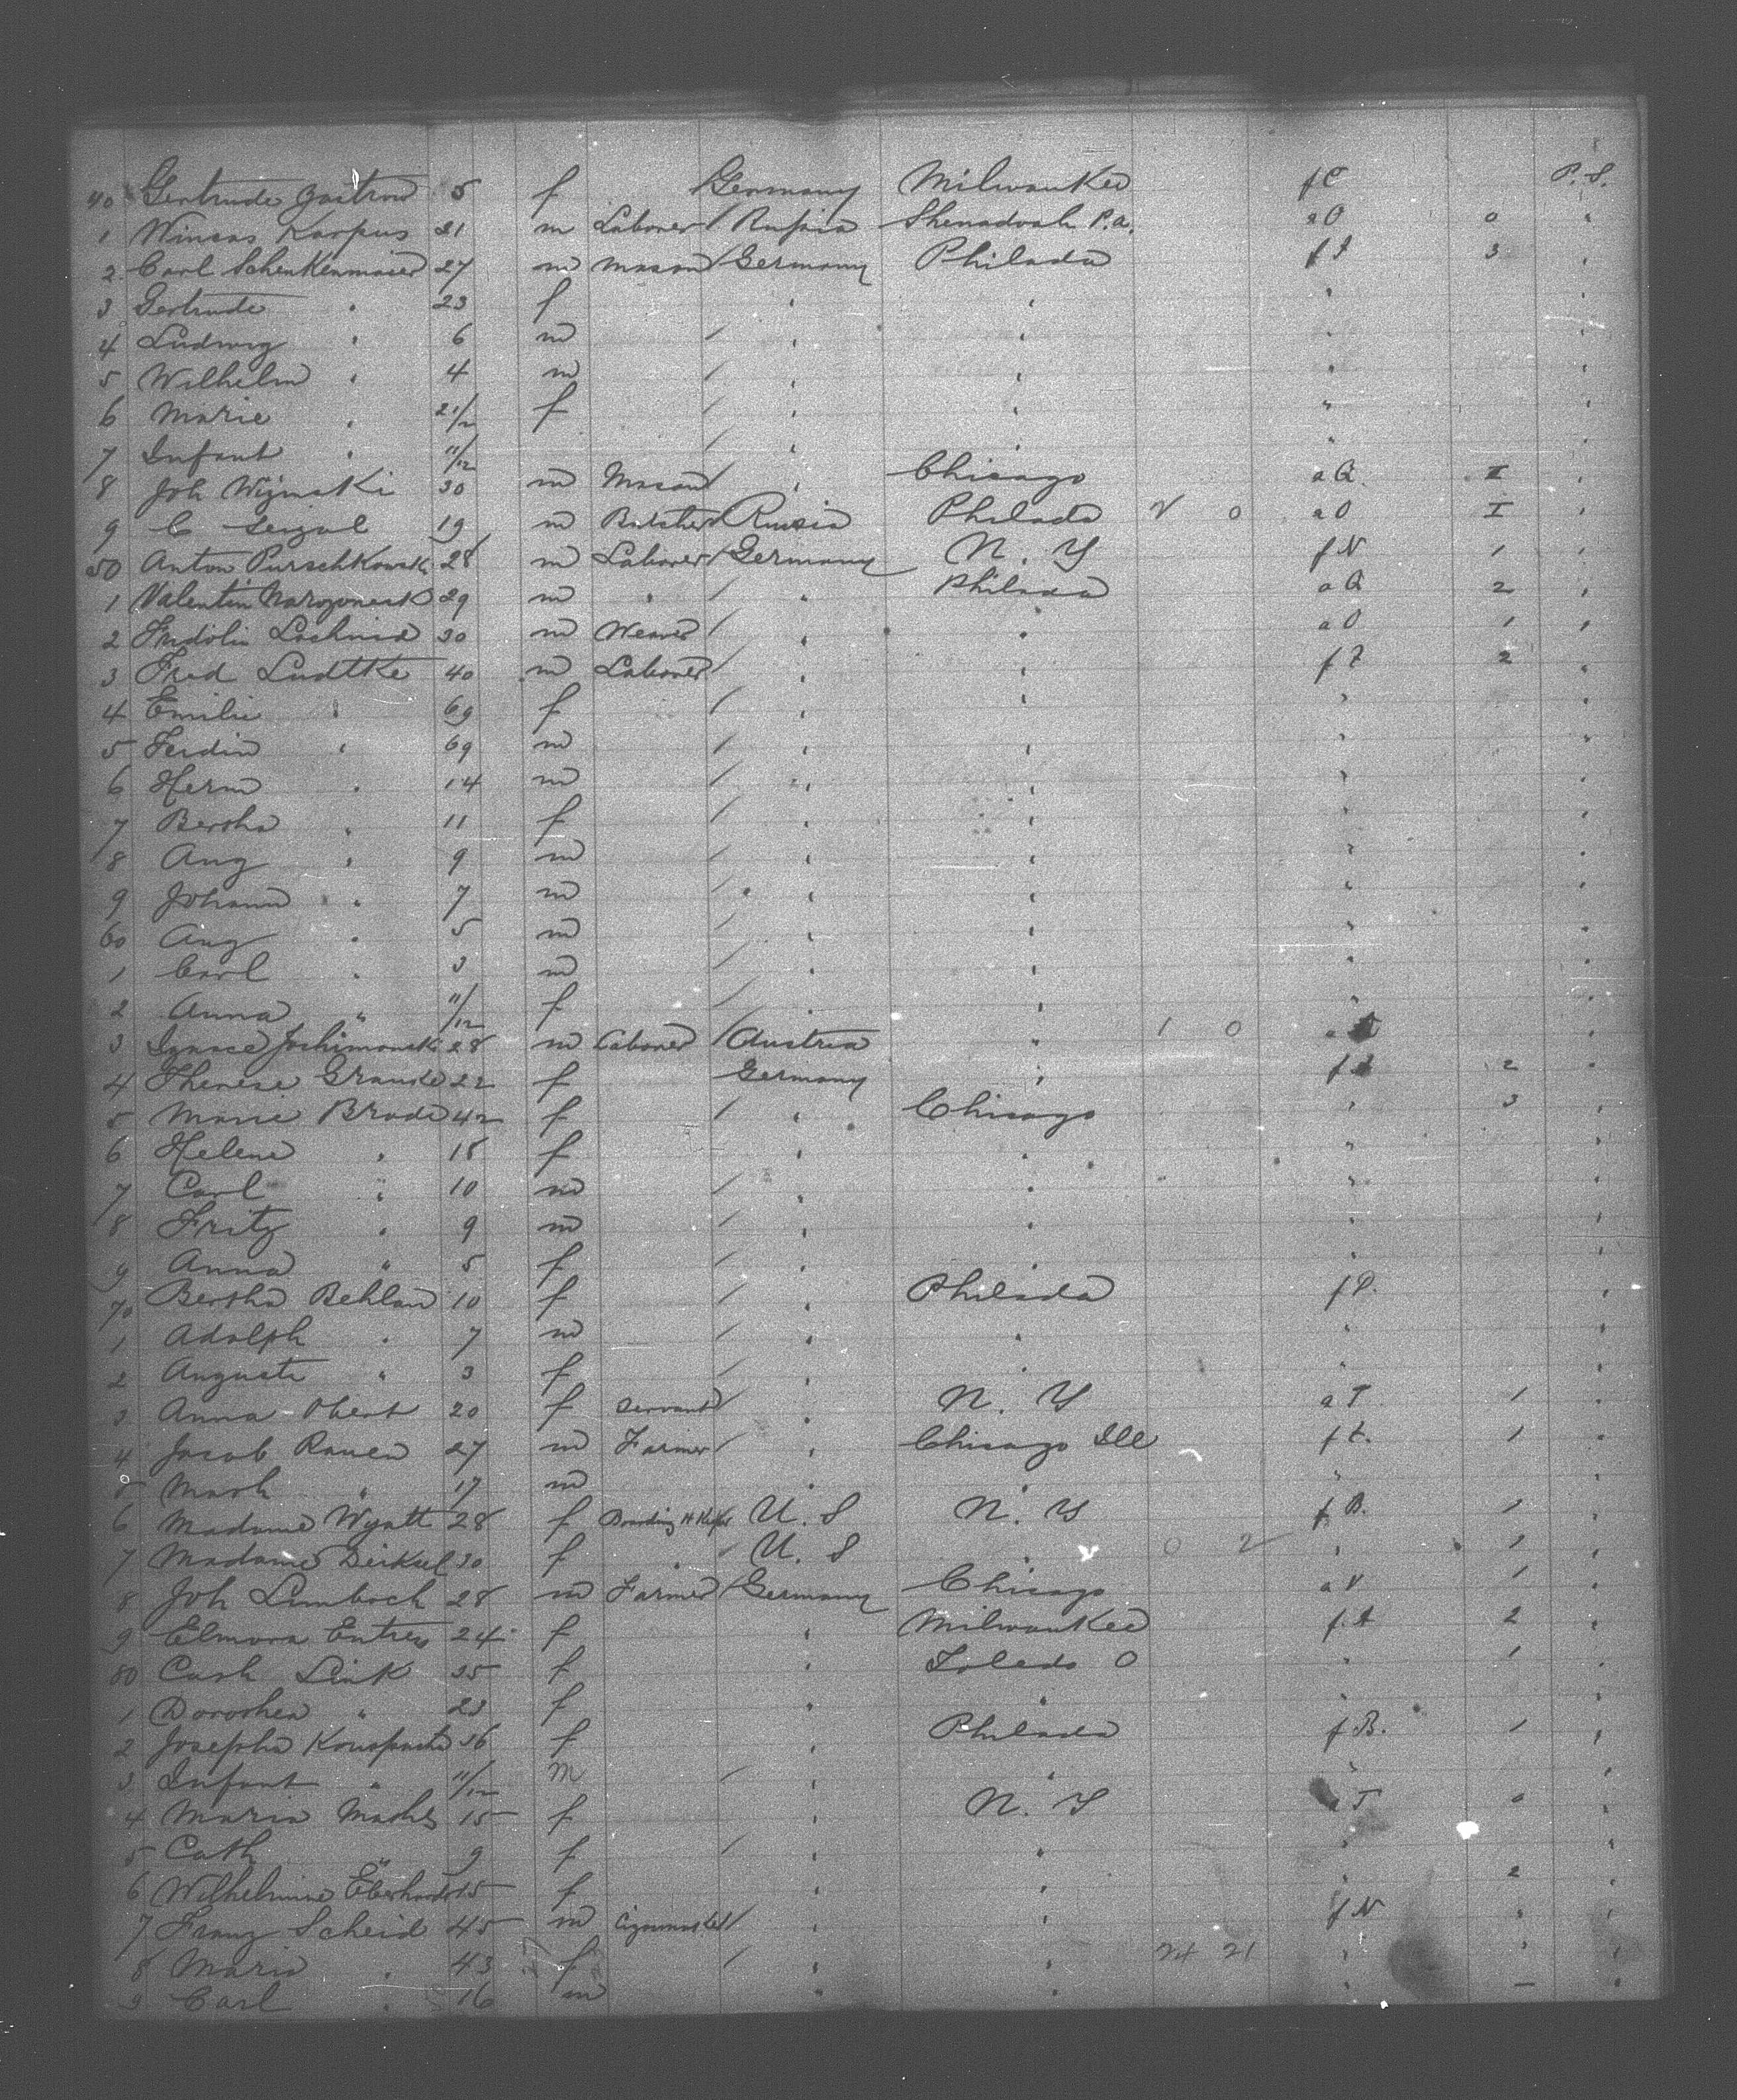 40 Gertrude Zastrow 5 f Germany Milwaukee f C P. S.
1 Winsas Karpus 21 m Laborer / Russia Shenadoah P.a. a O 0 "
2 Carl Schenkenmaier 27 m Mason / Germany Philada f I 3 "
3 Gertrude " 23 f " " " "
4 Ludwig " 6 m / " " " "
5 Wilhelm " 4 m / " " " "
6 Marie " 2 1/2 f / " " " "
7 Infant " 11/12 / " " " "
8 Joh Wijnski 30 m Mason / " Chicago a Q. I "
9 C 19 m Butcher Russia Philada 2 0 a O I "
50 Anton Purschkowsk 28 m Laborer / Germany N. Y f N 1 "
1 Valentin 29 m " / " Philada a Q 2 "
2 Fridolin 30 m Weaver / " " a O 1 "
3 Fred Ludtke 40 m Laborer / " " f 2 "
4 Emilie " 69 f / " " " "
5 Ferdin " 69 m / " " " "
6 Herm " 14 m / " " " "
7 Bertha " 11 f / " " " "
8 Aug " 9 m / " " " "
9 Johann " 7 m / " " " "
60 Aug " 5 m / " " " "
1 Carl " 3 m / " " " "
2 Anna " 11/12 f / " " " "
3 Ignace Jochimowsk 28 m Laborer / Austria " 1 0 a "
4 Therese Granke 22 f Germany " f 2 "
5 Marie Brode 42 f / " Chicago " 3 "
6 Helene " 18 f " " " "
7 Carl " 10 m / " " " "
8 Fritz " 9 m / " " " "
9 Anna " 5 f / " " " "
70 Bertha Behlau 10 f / " Philada f P. "
1 Adolph " 7 m / " " " "
2 Auguste " 3 f / " " " "
3 Anna Obert 20 f Servant / " N. Y a T 1 "
4 Jacob Rauen 27 m Farmer / " Chicago Ill f t. 1 "
5 Math " 17 m " " " "
6 Madame Wyatt 28 f Boarding H Keeper U. S N. Y f B. 1 "
7 Madame 30 f " / U. S " 0 2 " 1 "
8 Joh Limbach 28 m Farmer / Germany Chicago a V 1 "
9 Elmora Entres 24 f " Milwaukee f. A 2 "
80 Cath Link 25 f " Toledo O " 1 "
1 Dorothea " 23 f " " " "
2 Josepha 36 f " Philada f B. 1 "
3 Infant " 11/12 m / " " " "
4 Maria Mathes 15 f " N. Y T 0 "
5 Cath " 9 f / " " " "
6 Wilhelmine Eberhardt 15 f " " " 2 "
7 Franz Scheid 45 m Cigarmaker / " " f N " "
8 Maria " 43 f / " " 24 21 " " "
9 Carl " 16 m " " " — "